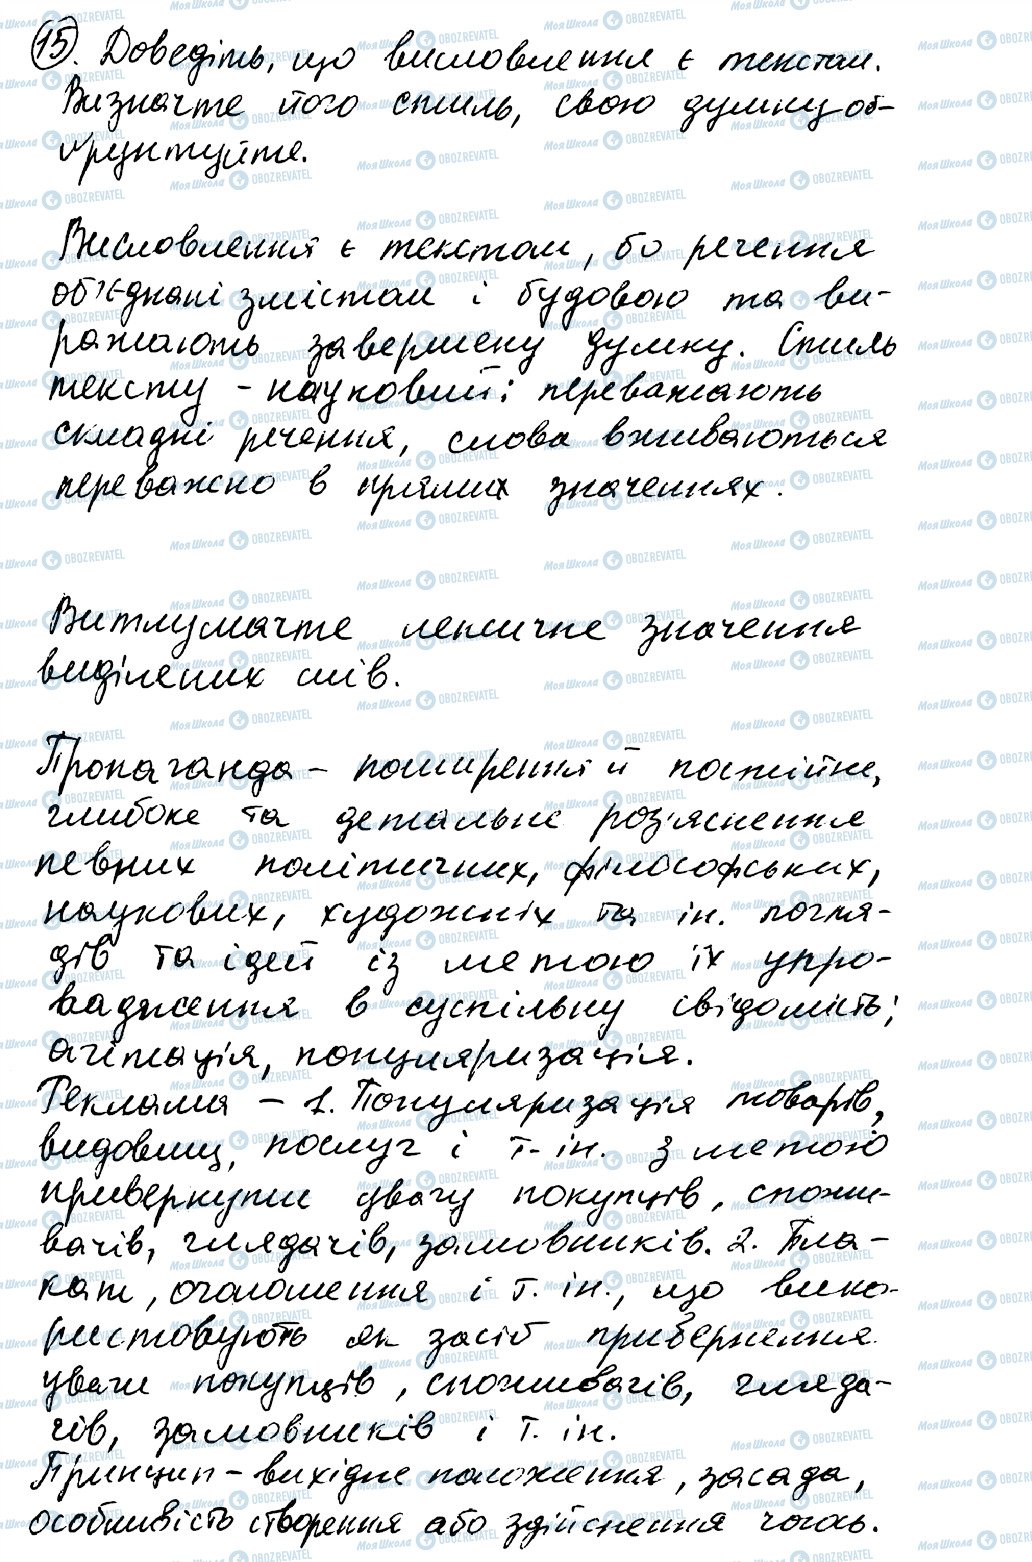 15. Доведіть, що висловлення є текстом.
Визначте його стиль, свою думку об-
ґрунтуйте.
Висловлення є текстом, бо речення
об'єднані змістом і будовою та ви-
ражають завершену думку. Стиль
тексту - науковий: переважають
складні речення, слова вживаються
переважно в прямих значеннях.
Витлумачте лексичне значення
виділених слів.
Пропаганда - поширення й постійне,
глибоке та детальне роз'яснення
певних політичних, філософських,
наукових, художніх та ін. погля-
дів та ідей із метою їх упро-
вадження в суспільну свідомість;
агітація, популяризація.
Реклама - 1. Популяризація товарів,
видовищ, послуг і т. ін. з метою
привернути увагу покупців, спожи-
вачів, глядачів, замовників. 2. Пла-
кат, оголошення і т. ін., що вико-
ристовують як засіб привернення
уваги покупців, споживачів, гляда-
чів, замовників і т. ін.
Принцип - вихідне положення, засада,
особливість створення або здійснення чогось.